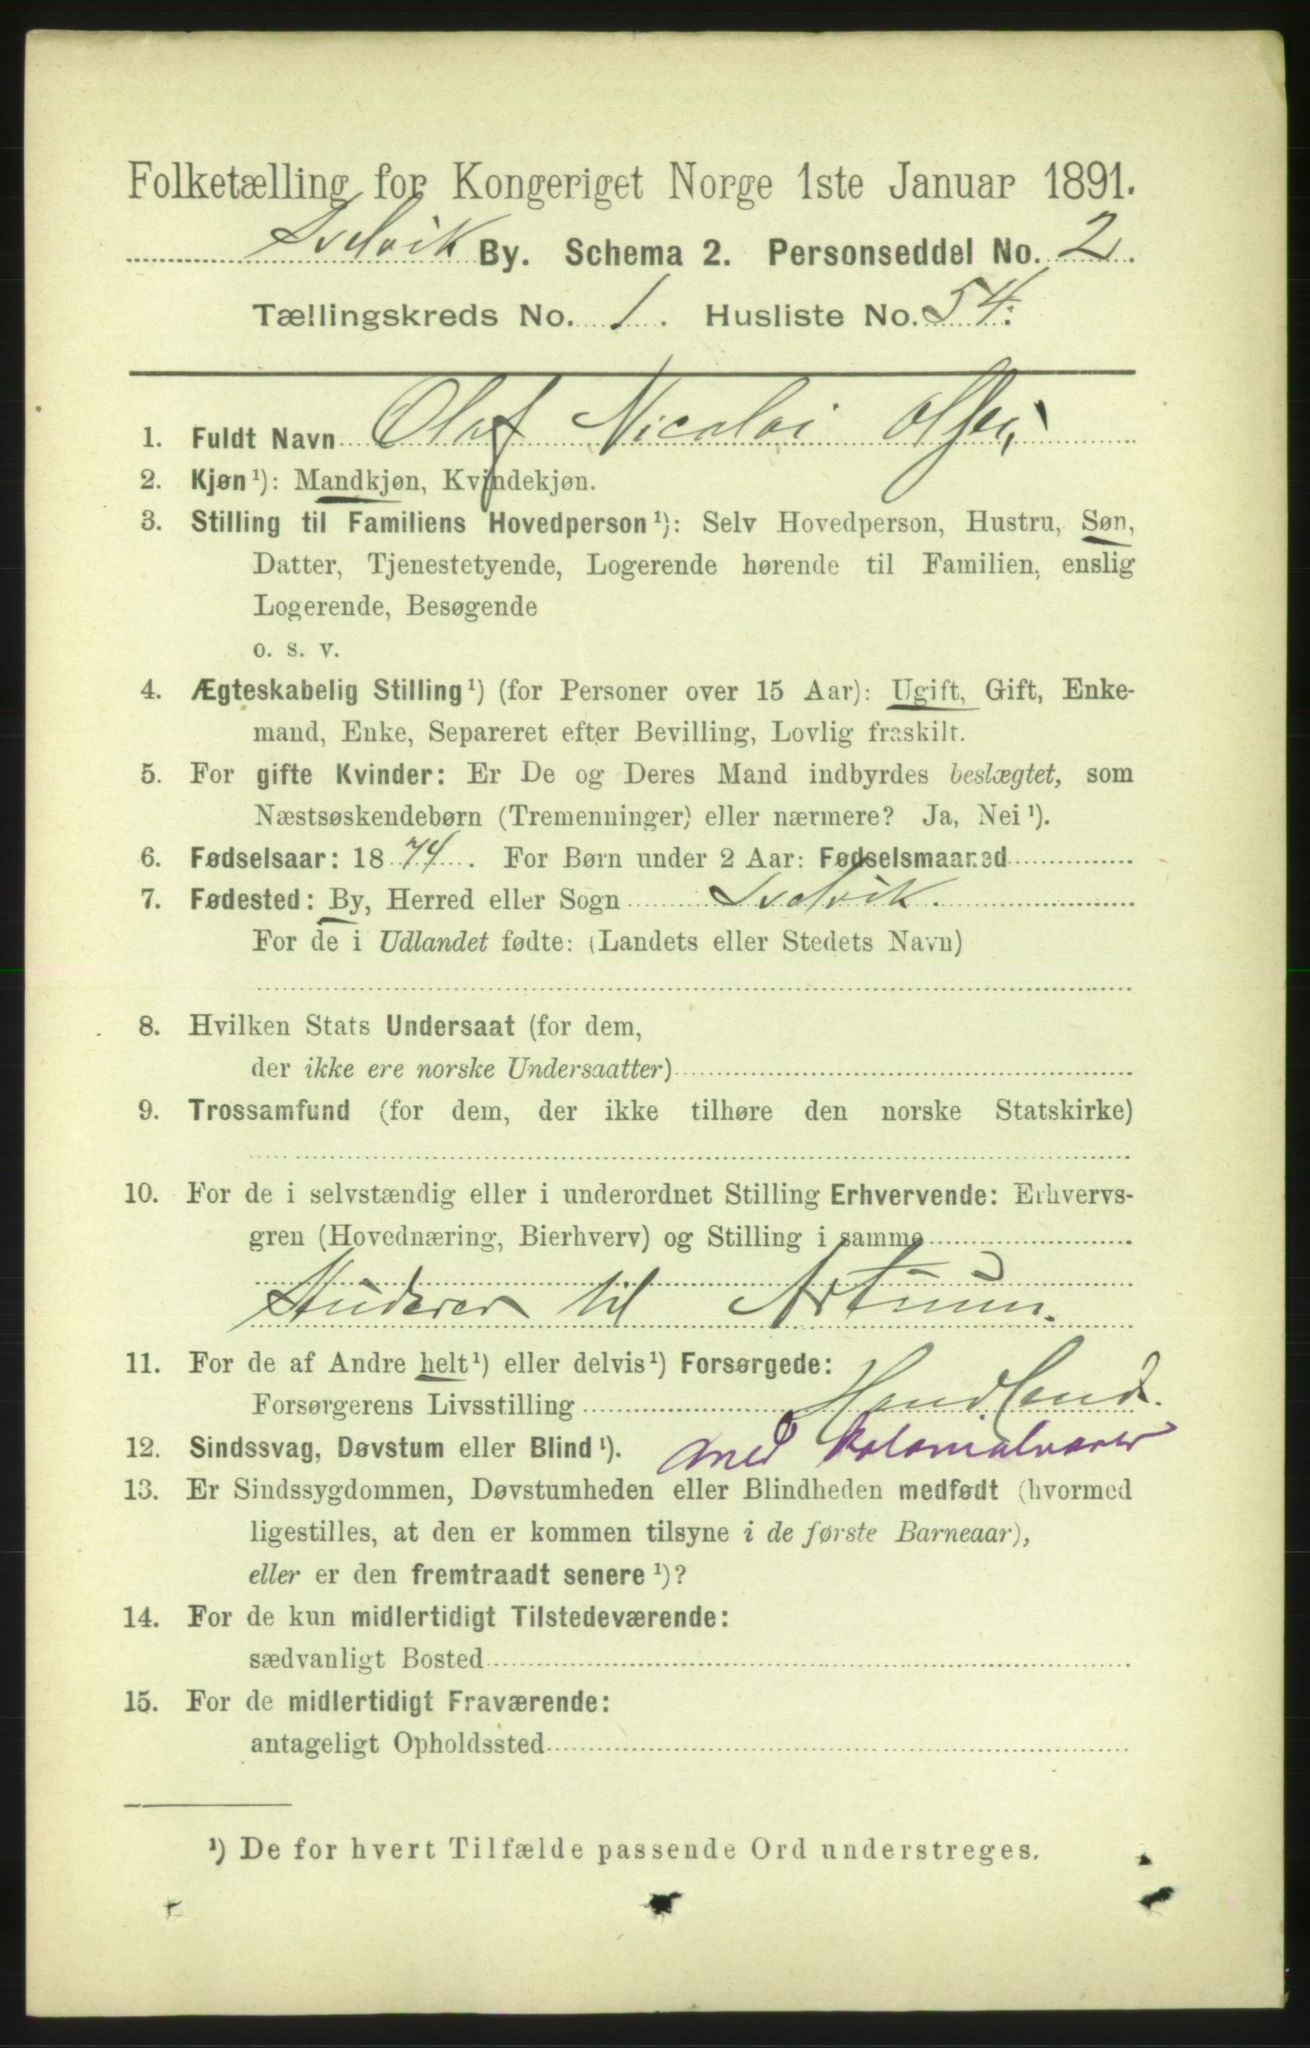 Folketælling for Kongeriget Norge 1ste Januar 1891.
Svelvik By. Schema 2. Personseddel No. 2.
Tællingskreds No. 1. Husliste No. 54.
1. Fuldt Navn Olaf Nicolai Olsen
2. Kjøn¹): Mandkjøn, Kvindekjøn.
3. Stilling til Familiens Hovedperson¹): Selv Hovedperson, Hustru, Søn,
Datter, Tjenestetyende, Logerende hørende til Familien, enslig
Logerende, Besøgende
o. s. v.
4. Ægteskabelig Stilling¹) (for Personer over 15 Aar): Ugift, Gift, Enke-
mand, Enke, Separeret efter Bevilling, Lovlig fraskilt.
5. For gifte Kvinder: Er De og Deres Mand indbyrdes beslægtet, som
Næstsøskendebørn (Tremenninger) eller nærmere? Ja, Nei¹).
6. Fødselsaar: 1874. For Børn under 2 Aar: Fødselsmaaned
7. Fødested: By, Herred eller Sogn Svelvik.
For de i Udlandet fødte: (Landets eller Stedets Navn)
8. Hvilken Stats Undersaat (for dem,
der ikke ere norske Undersaatter)
9. Trossamfund (for dem, der ikke tilhøre den norske Statskirke)
10. For de i selvstændig eller i underordnet Stilling Erhvervende: Erhvervs-
gren (Hovednæring, Bierhverv) og Stilling i samme
Studerer til Artium.
11. For de af Andre helt¹) eller delvis¹) Forsørgede:
Forsørgerens Livsstilling
12. Sindssvag, Døvstum eller Blind¹). med kolonialvarer
13. Er Sindssygdommen, Døvstumheden eller Blindheden medfødt (hvormed
ligestilles, at den er kommen tilsyne i de første Barneaar),
eller er den fremtraadt senere¹)?
14. For de kun midlertidigt Tilstedeværende:
sædvanligt Bosted
15. For de midlertidigt Fraværende:
antageligt Opholdssted
¹) De for hvert Tilfælde passende Ord understreges.